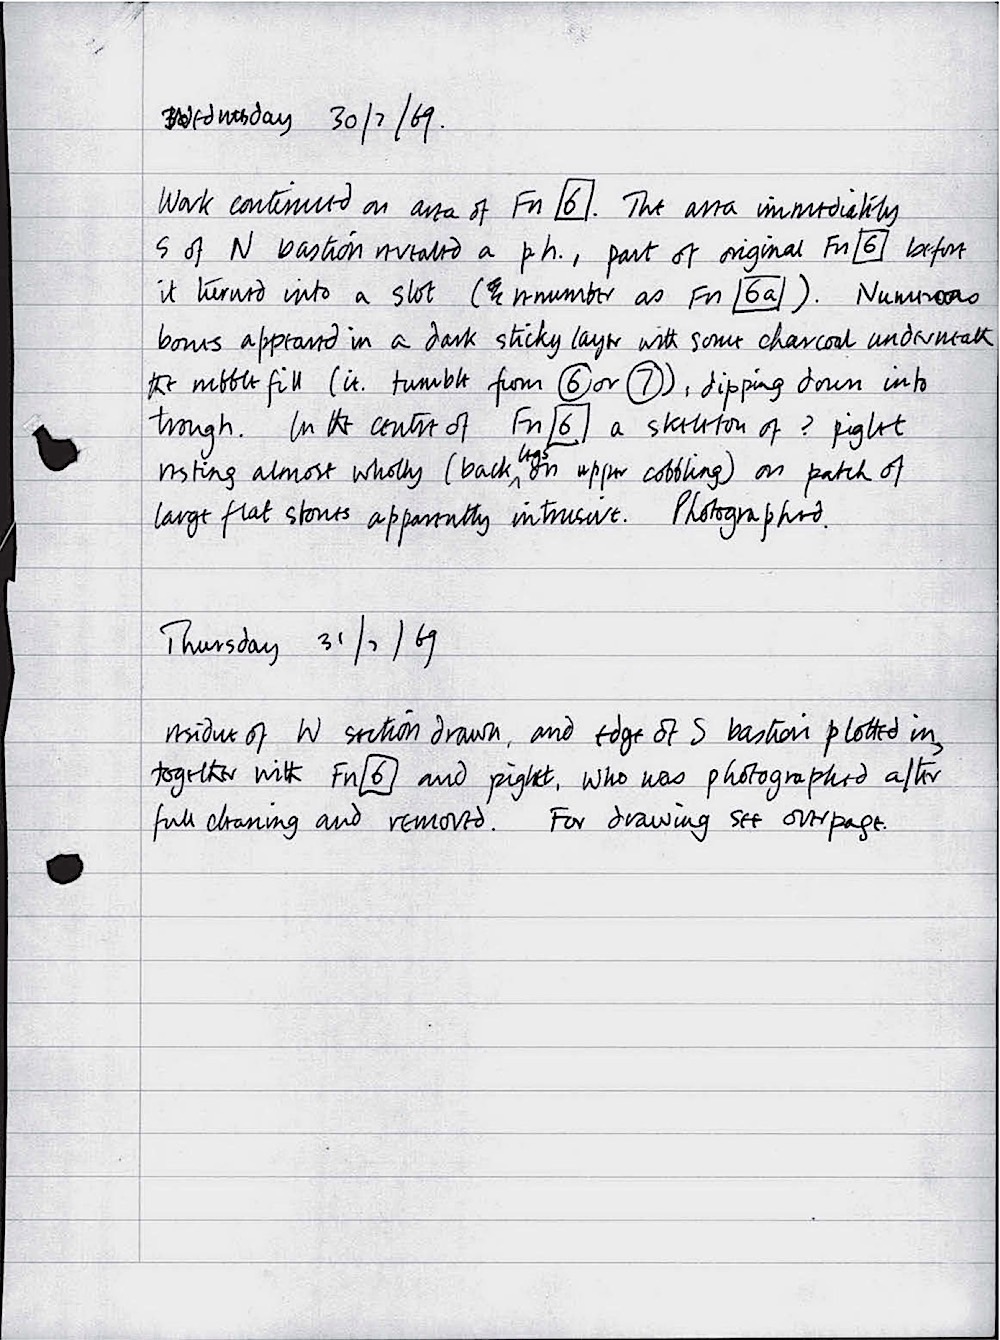 Wednesday 30/7/69.
Work continued on area of Fn [6]. The area immediately
S of N bastion revealed a p.h., part of original Fn [6] before
it turned into a slot (renumber as Fn [6a]). Numerous
bones appeared in a dark sticky layer with some charcoal underneath
the rubble fill (ie. tumble from (6) or (7)), dipping down into
trough. In the centre of Fn [6] a skeleton of ? piglet
resting almost wholly (back legs on upper cobbling) on patch of
large flat stones apparently intrusive. Photographed.
Thursday 31/7/69
residue of W section drawn, and edge of S bastion plotted in,
together with Fn [6] and piglet, who was photographed after
full cleaning and removed. For drawing see overpage.